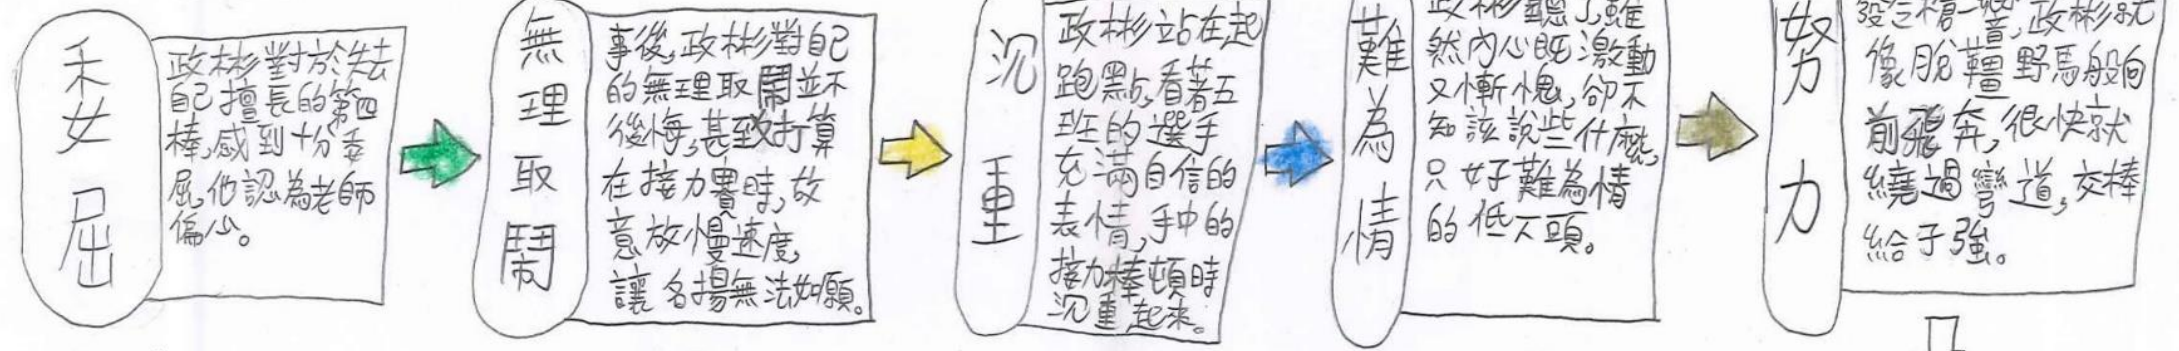 委屈
政彬對於失去
自己擅長的第四
棒,感到十分委
屈,他認為老師
偏心。
無理取鬧
事後,政彬對自己
的無理取鬧並不
後悔,甚至打算
在接力賽時,故
意放慢速度,
讓名揚無法如願。
沉重
政彬站在起
跑點,看著五
班的選手
充滿自信的
表情,手中的
接力棒頓時
沉重起來。
難為情
政彬聽了,雖
然內心既激動
又慚愧,卻不
知該說些什麼,
只好難為情
的低下頭。
努力
發令槍一響,政彬就
像脫韁野馬般向
前飛奔,很快就
繞過彎道,交棒
給子強。